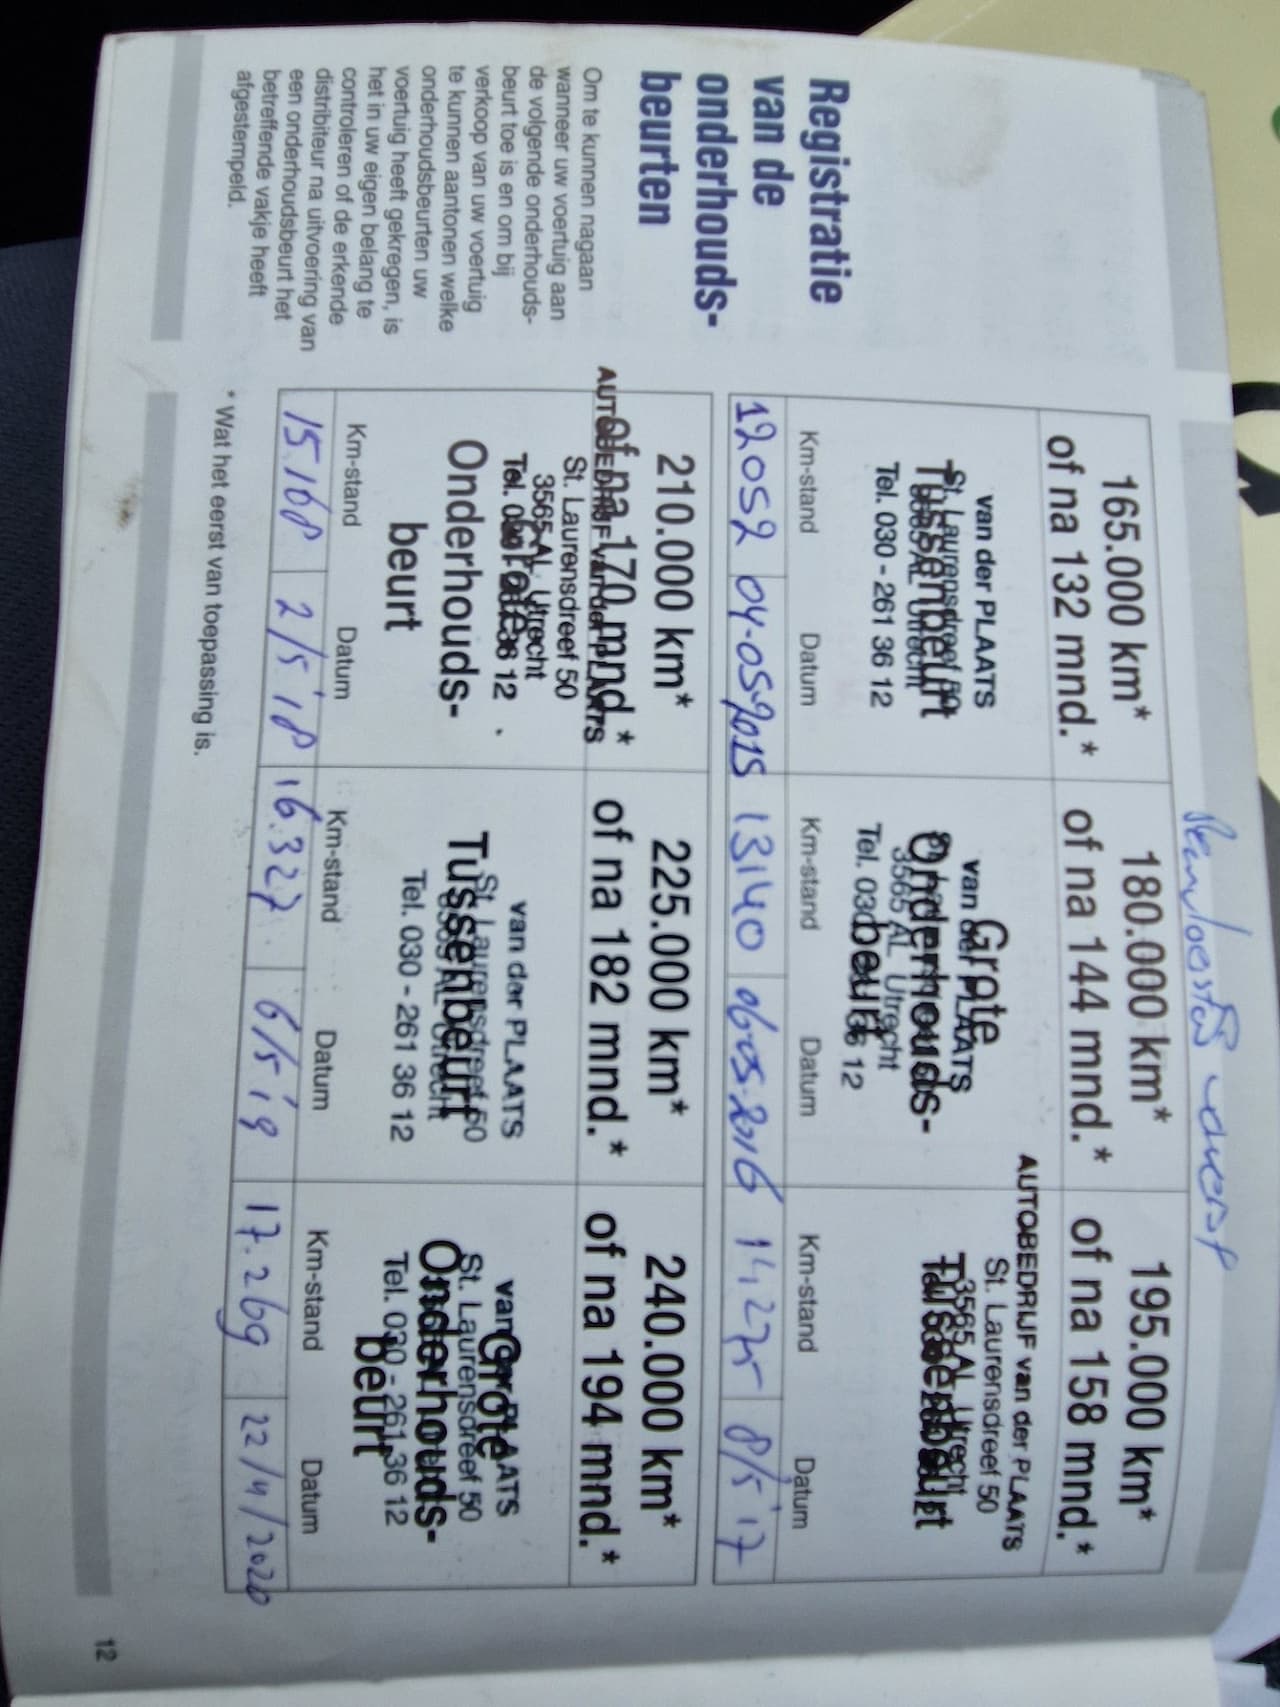 Registratie
van de
onderhouds-
beurten
Om te kunnen nagaan
wanneer uw voertuig aan
de volgende onderhouds-
beurt toe is en om bij
verkoop van uw voertuig
te kunnen aantonen welke
onderhoudsbeurten uw
voertuig heeft gekregen, is
het in uw eigen belang te
controleren of de erkende
distributeur na uitvoering van
een onderhoudsbeurt het
betreffende vakje heeft
afgestempeld.
165.000 km*
of na 132 mnd.*
van der PLAATS
St. Laurensdreef 50
Tussenbeurt
3565 AL Utrecht
Tel. 030 - 261 36 12
Km-stand Datum
12052 04-05-2015
180.000 km*
of na 144 mnd.*
Grote
van der PLAATS
Onderhouds-
3565 AL Utrecht
beurt
Tel. 030 36 12
Km-stand Datum
13140 06-05-2016
195.000 km*
of na 158 mnd.*
AUTOBEDRIJF van der PLAATS
St. Laurensdreef 50
3565 AL Utrecht
Tussenbeurt
Km-stand Datum
14.275 8/5'17
210.000 km*
of na 170 mnd.*
AUTOBEDRIJF van der PLAATS
St. Laurensdreef 50
3565 AL Utrecht
Grote
Tel. 36 12
Onderhouds-
beurt
Km-stand Datum
15.168 2/5'18
225.000 km*
of na 182 mnd.*
van der PLAATS
St. Laurensdreef 50
Tussenbeurt
3565 AL Utrecht
Tel. 030 - 261 36 12
Km-stand Datum
16.327 6/5'19
240.000 km*
of na 194 mnd.*
van PLAATS
Grote
St. Laurensdreef 50
Onderhouds-
Tel. 030 - 261 36 12
beurt
Km-stand Datum
17.269 22/4/2020
* Wat het eerst van toepassing is.
12